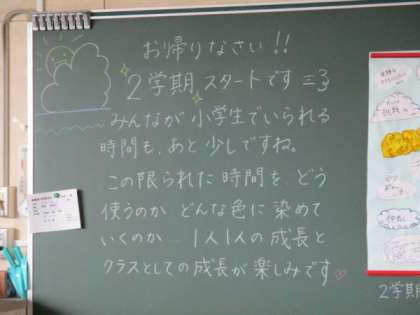 お帰りなさい!!
2学期 スタートです
みんなが 小学生でいられる
時間も、あと 少しですね。
この限られた 時間を、どう
使うのか どんな色に 染めて
いくのか 1人1人の 成長と
クラスとしての 成長が 楽しみです♡
2学期